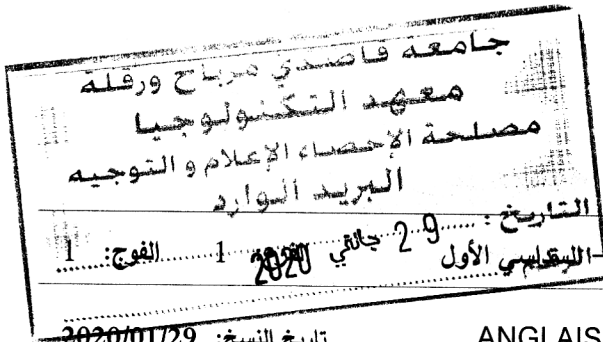 جامعة قاصدي مرباح ورقلة
معهد التكنولوجيا
مصلحة الإحصاء الإعلام و التوجيه
البريد الوارد
التاريخ: 29 جانفي 2020
السداسي الأول 1 الفوج: 1
ANGLAIS تاريخ النسخ: 2020/01/29